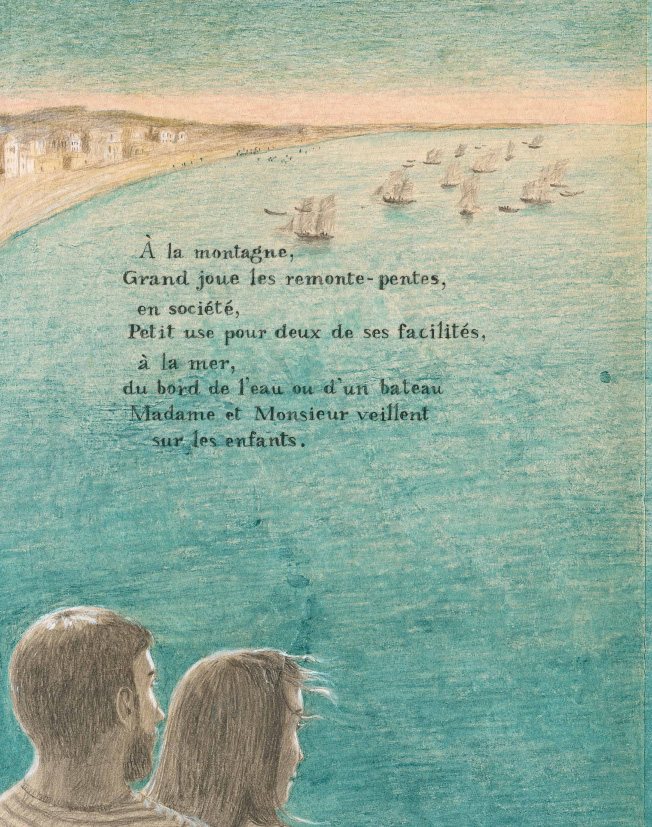 À la montagne,
Grand joue les remonte-pentes,
en société,
Petit use pour deux de ses facilités,
à la mer,
du bord de l'eau ou d'un bateau
Madame et Monsieur veillent
sur les enfants.